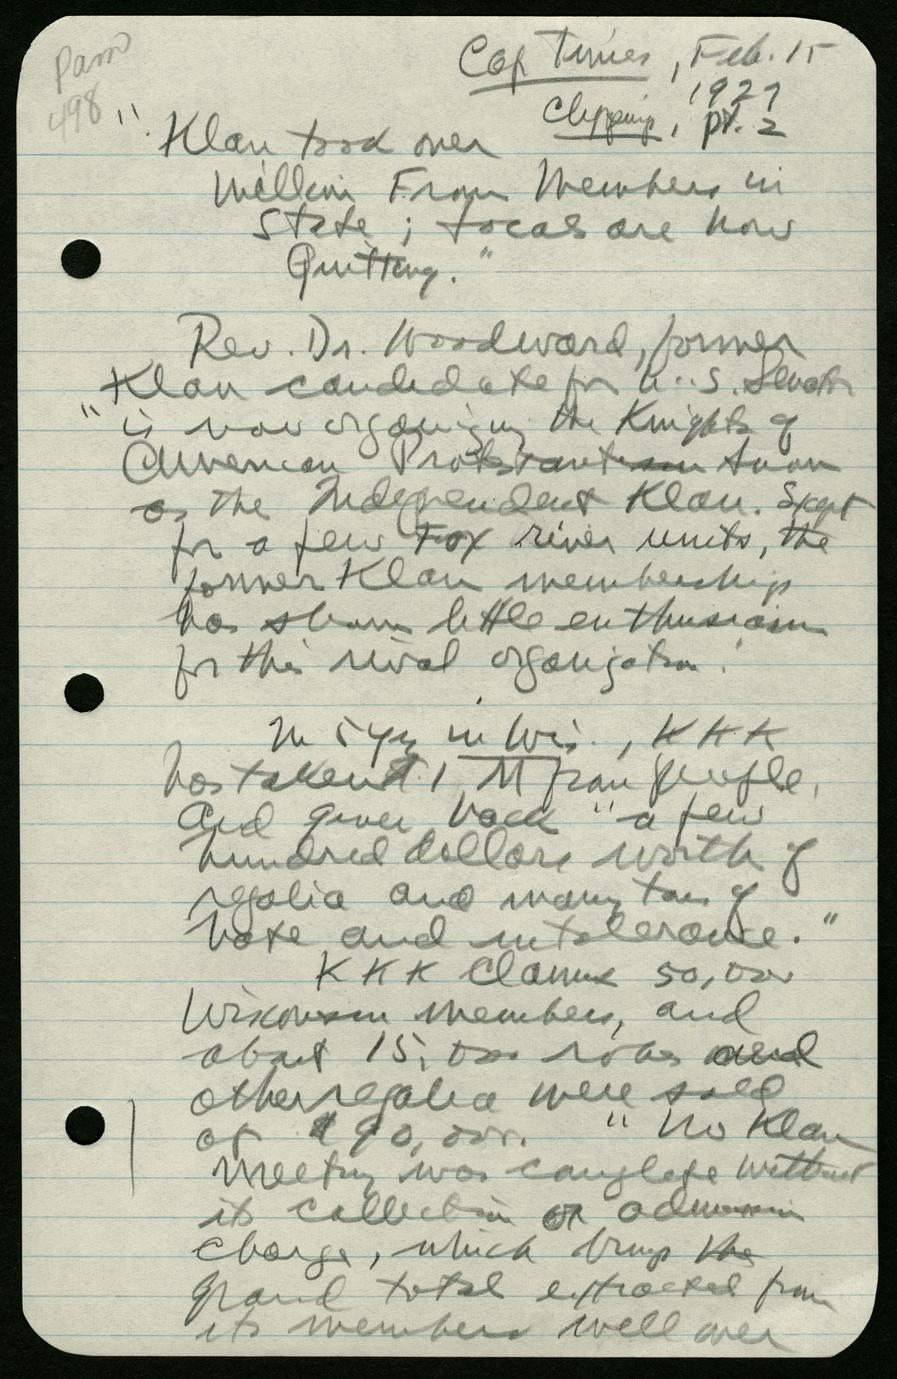 Pam
498
Cap Times, Feb. 15
1927
Clipping, pt. 2
"Klan took over
Million From Members in
State; Locals are now
Quitting."
Rev. Dr. Woodward, former
Klan candidate for U.S. Senate
"is now organizing the Knights of
American Protestantism known
as the Independent Klan. Except
for a few Fox river units, the
former Klan membership
has shown little enthusiasm
for this rival organization."
In 5 yrs in Wis., KKK
has taken $1 M from people,
and given back "a few
hundred dollars worth of
regalia and many tons of
hate and intolerance."
KKK claims 50,000
Wisconsin members, and
about 15,000 robes and
other regalia were sold
at $90,000. "No Klan
meeting was complete without
its collection or admission
charge, which brings the
grand total extracted from
its members well over